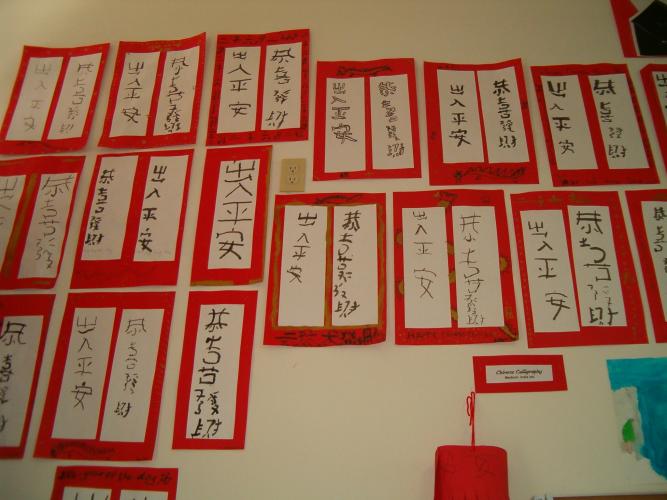 出入平安
恭喜發財
出入平安
恭喜發財
出入平安
恭喜發財
出入平安
恭喜發財
出入平安
恭喜發財
出入平安
恭喜發財
出入平安
恭喜發財
恭喜發財
出入平安
出入平安
出入平安
恭喜發財
出入平安
恭喜發財
出入平安
恭喜發財
恭喜發財
恭喜發財
出入平安
恭喜發財
恭喜發財
Chinese Calligraphy